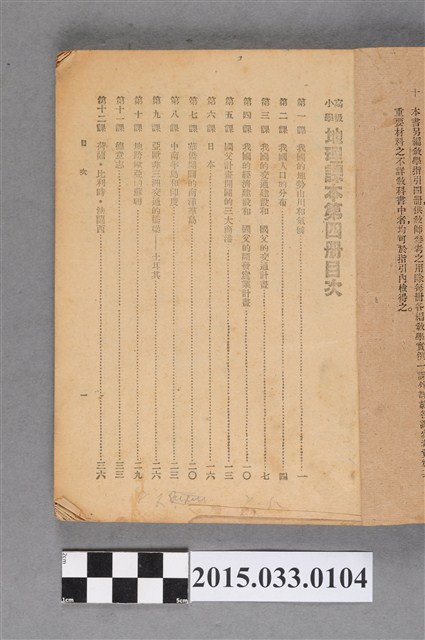 十 本書另編教學指引四冊供教師參考之用除每冊各編教學實例一
重要材料之不詳教科書中者均可於指引內檢得之。
高級小學 地理課本第四冊目次
第一課 我國的地勢山川和氣候 一
第二課 我國人口的分布 四
第三課 我國的交通建設和 國父的交通計畫 七
第四課 我國的經濟建設和 國父的開發實業計畫 一〇
第五課 國父計畫開闢的三大商港 一三
第六課 日本 一六
第七課 華僑開闢的南洋羣島 二〇
第八課 中南半島和印度 二三
第九課 亞歐非三洲交通的橋梁——土耳其 二六
第十課 地跨歐亞的蘇聯 二九
第十一課 德意志 三三
第十二課 荷蘭・比利時・法蘭西 三六
目次
一
2015.033.0104